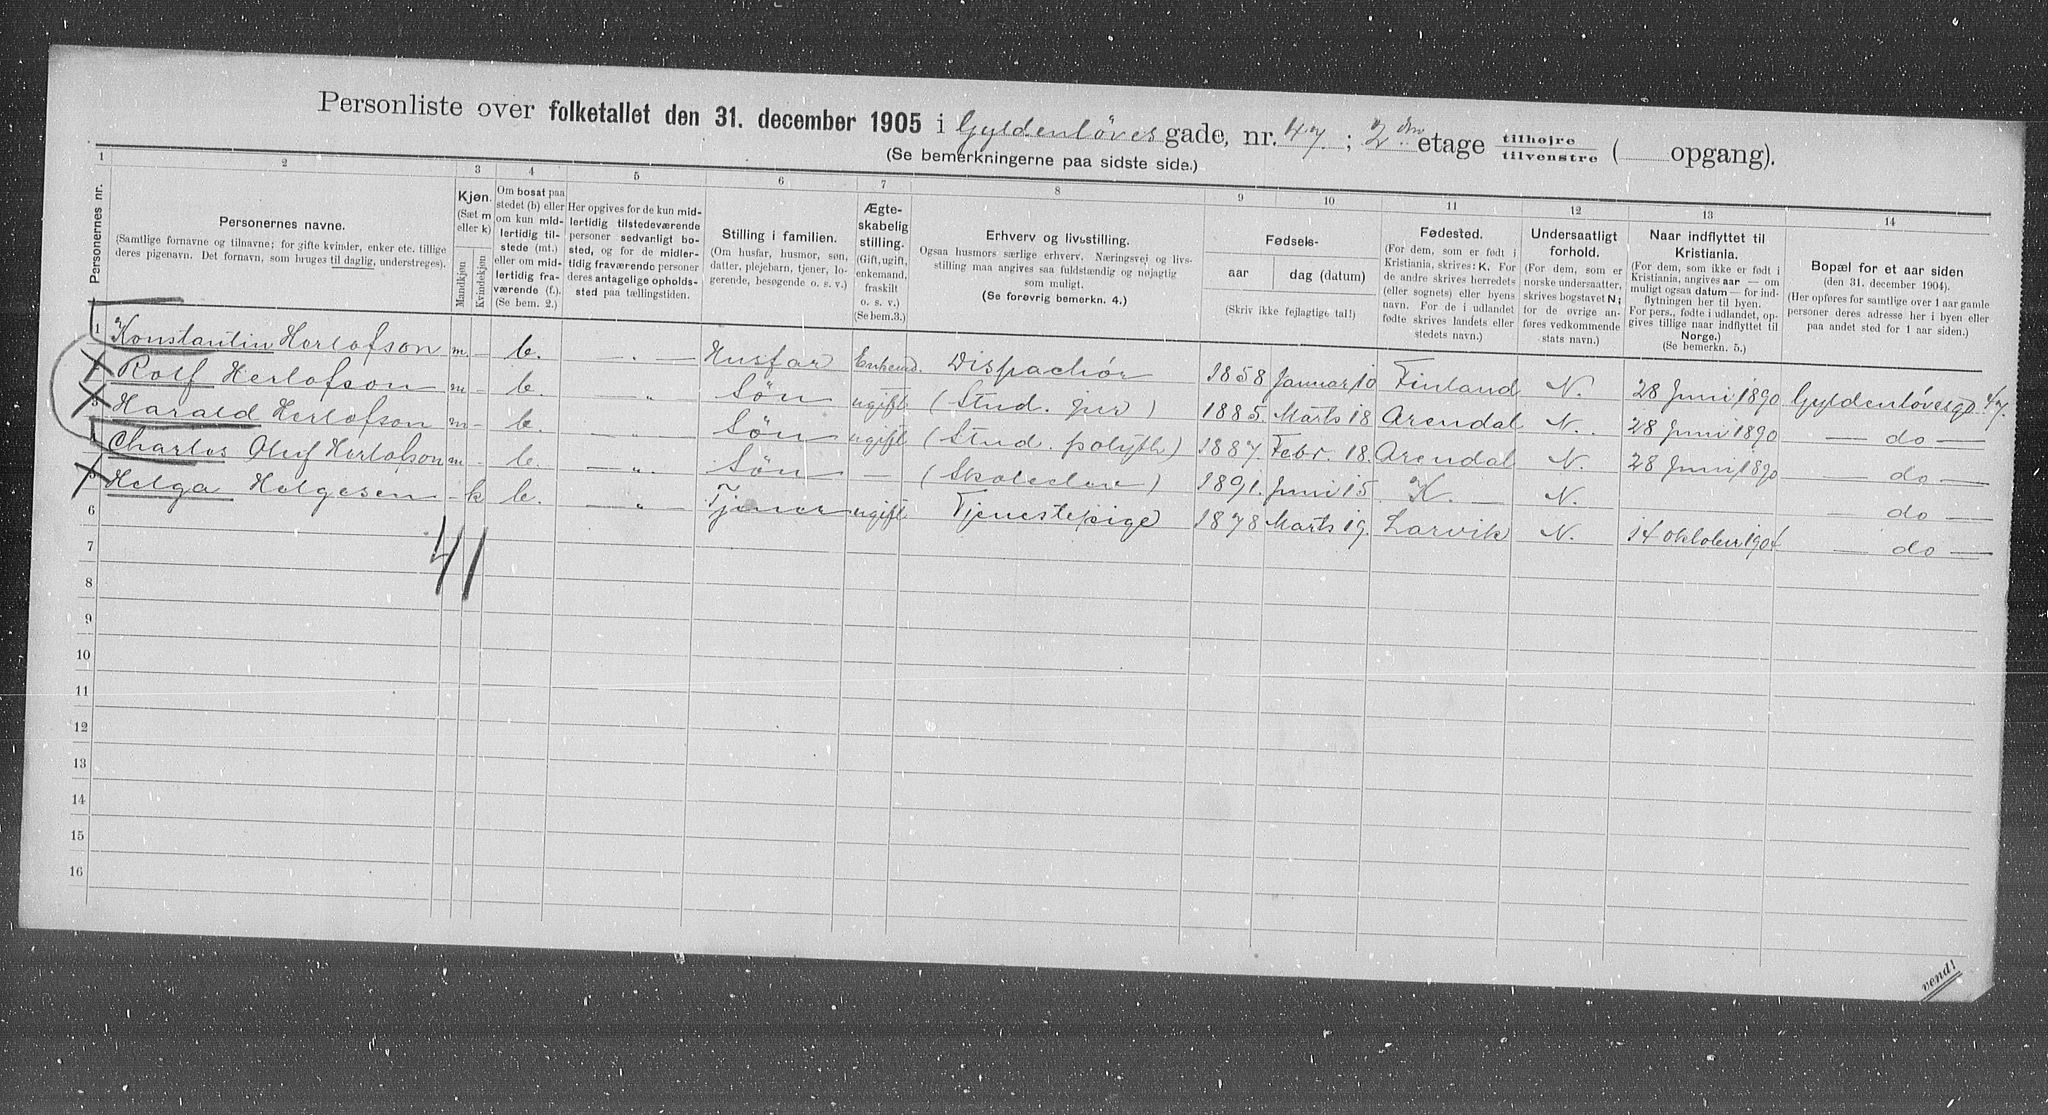 Personliste over folketallet den 31. december 1905 i Gyldenløves gade, nr. 47 ; 2 den etage tilhøjre / tilvenstre ( opgang).
(Se bemerkningerne paa sidste side.)
1 2 3 4 5 6 7 8 9 10 11 12 13 14
Personernes nr.
Personernes navne.
(Samtlige fornavne og tilnavne; for gifte kvinder, enker etc. tillige
deres pigenavn. Det fornavn, som bruges til daglig, understreges).
Kjøn.
(Sæt m
eller k)
Mandkjøn
Kvindekjøn
Om bosat paa
stedet (b) eller
om kun mid-
lertidig til-
stede (mt.)
eller om mid-
lertidig fra-
værende (f.).
(Se bem. 2.)
Her opgives for de kun mid-
lertidig tilstedeværende
personer sedvanligt bo-
sted, og for de midler-
tidig fraværende personer
deres antagelige opholds-
sted paa tællingstiden.
Stilling i familien.
(Om husfar, husmor, søn,
datter, plejebarn, tjener, lo-
gerende, besøgende o. s. v.)
Ægte-
skabelig
stilling.
(Gift, ugift,
enkemand,
fraskilt
o. s. v.)
(Se bem.3.)
Erhverv og livsstilling.
Ogsaa husmors særlige erhverv. Næringsvej og livs-
stilling maa angives saa fuldstændig og nøjagtig
som muligt.
(Se forøvrig bemerkn. 4.)
Fødsels-
aar
dag (datum)
(Skriv ikke fejlagtige tal!)
Fødested.
(For dem, som er født i
Kristiania, skrives: K. For
de andre skrives herredets
(eller sognets) eller byens
navn. For de i udlandet
fødte skrives landets eller
stedets navn.)
Undersaatligt
forhold.
(For dem, som er
norske undersaatter,
skrives bogstavet N;
for de øvrige an-
føres vedkommende
stats navn.)
Naar indflyttet til
Kristiania.
(For dem, som ikke er født i
Kristiania, angives aar — om
muligt ogsaa datum — for ind-
flytningen her til byen.
For pers., fødte i udlandet, op-
gives tillige naar indflyttet til
Norge.)
(Se bemerkn. 5.)
Bopæl for et aar siden
(den 31. december 1904).
(Her opføres for samtlige over 1 aar gamle
personer deres adresse her i byen eller
paa andet sted for 1 aar siden.)
1 Konstantin Herlofson m - b. — „ — Husfar Enkemd. Dispachør 1858 Januar 10 Finland N. 28 Juni 1890 Gyldenløvesgd. 47.
Rolf Herlofson m - b. — „ — Søn ugift (Stud. jur) 1885. Marts 18 Arendal N. 28 Juni 1890 — do —
3 Harald Herlofson m - b. — „ — Søn ugift (Stud. polyt.) 1887. Febr. 18. Arendal N. 28 Juni 1890 — do —
Charles Oluf Herlofson m - b. — „ — Søn — (Skoleelev) 1891. Juni 15 K. — N. — do —
5 Helga Helgesen - k b. — „ — Tjener ugift Tjenestepige 1878 Marts 19. Larvik N. 14 Oktober 1904 — do —
6
41
7
8
9
10
11
12
13
14
15
16
vend!